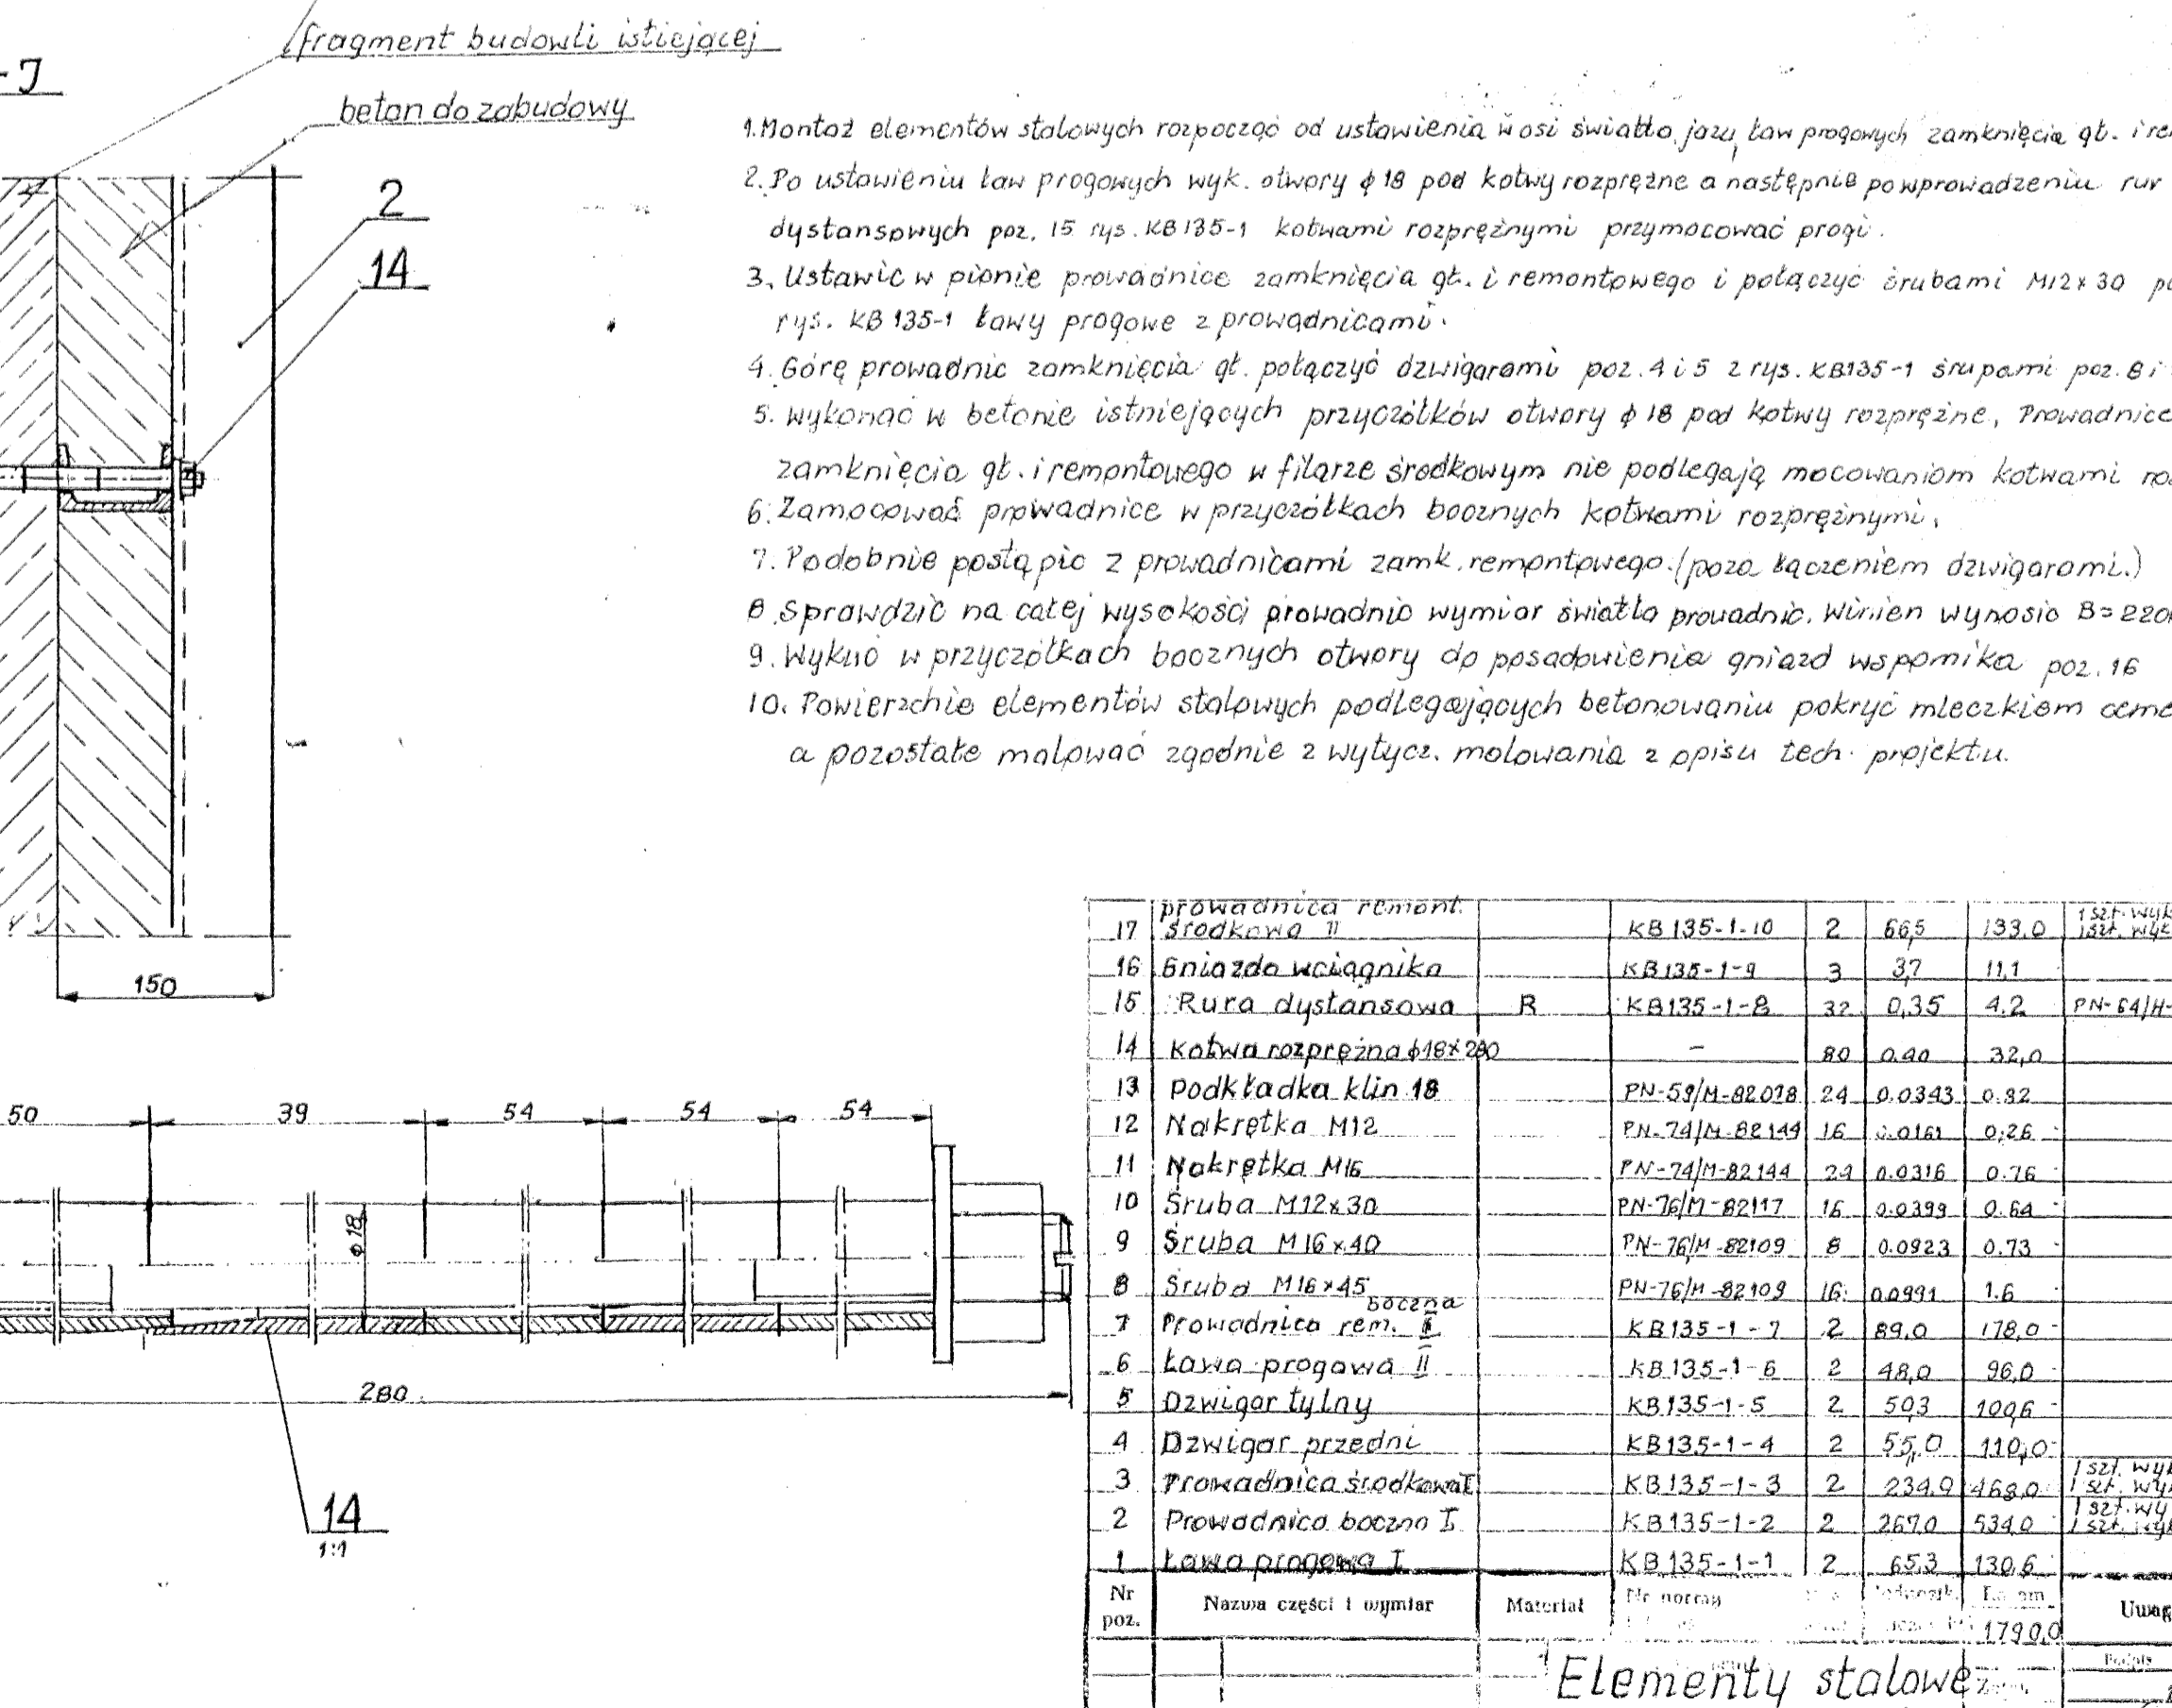 fragment budowli istiejącej
-J
beton do zabudowy
2
14
150
1. Montaż elementów stalowych rozpocząć od ustawienia w osi światła jazu ław progowych zamknięcia gł. i re
2. Po ustawieniu ław progowych wyk. otwory ϕ 18 pod kotwy rozprężne a następnie po wprowadzeniu rur
dystansowych poz. 15 rys. KB 135-1 kotwami rozprężnymi przymocować progi.
3. Ustawić w pionie prowadnice zamknięcia gł. i remontowego i połączyć śrubami M12x30
rys. KB 135-1 ławy progowe z prowadnicami.
4. Górę prowadnic zamknięcia gł. połączyć dzwigarami poz. 4 i 5 z rys. KB135-1 śrupami poz. 8 i
5. Wykonać w betonie istniejących przyczółków otwory ϕ 18 pod kotwy rozprężne, Prowadnice
zamknięcia gł. i remontowego w filarze środkowym nie podlegają mocowaniom kotwami
6. Zamocować prowadnice w przyczółkach bocznych kotwami rozprężnymi.
7. Podobnie postąpić z prowadnicami zamk. remontowego. (poza łączeniem dzwigarami.)
8. Sprawdzić na całej wysokości prowadnic wymiar światła prowadnic. Winien wynosić B=220
9. Wykuć w przyczółkach bocznych otwory do posadowienia gniazd wspornika poz. 16
10. Powierzchie elementów stalowych podlegających betonowaniu pokryć mleczkiem ceme
a pozostałe malować zgodnie z wytycz. malowania z opisu tech. projektu.
50 39 54 54 54
ϕ 18
280
14
1:1
17 prowadnica remont. środkowa II KB 135-1-10 2 66,5 133,0 1 szt. wyk 1 szt. wyk
16 Gniazdo wciągnika KB 135-1-9 3 3,7 11,1
15 Rura dystansowa R KB135-1-8 32 0,35 4.2 PN-64/H-
14 Kotwa rozprężna ϕ18x280 - 80 0.40 32,0
13 Podkładka klin 18 PN-59/M-82018 24 0.0343 0.82
12 Nakrętka M12 PN-74/M-82144 16 0.0161 0,26
11 Nakrętka M16 PN-74/M-82144 24 0.0316 0.76
10 Śruba M12x30 PN-76/M-82117 16 0.0399 0.64
9 Śruba M16x40 PN-76/M-82109 8 0.0923 0.73
8 Śruba M16x45 PN-76/M-82109 16 0.0991 1.6
7 Prowadnica rem. boczna II KB135-1-7 2 89,0 178,0
6 Ława progowa II KB 135-1-6 2 48,0 96,0
5 Dzwigar tylny KB135-1-5 2 50,3 100,6
4 Dzwigar przedni KB135-1-4 2 55,0 110,0
3 Prowadnica środkowa I KB 135-1-3 2 234,0 468,0 1 szt. wyk 1 szt. wyk
2 Prowadnica boczna I KB 135-1-2 2 267,0 534,0 1 szt. wy 1 szt. wyk
1 Ława progowa I KB 135-1-1 2 65,3 130,6
Nr poz. Nazwa części i wymiar Materiał Nr normy Uwag
1790,0
Elementy stalowe